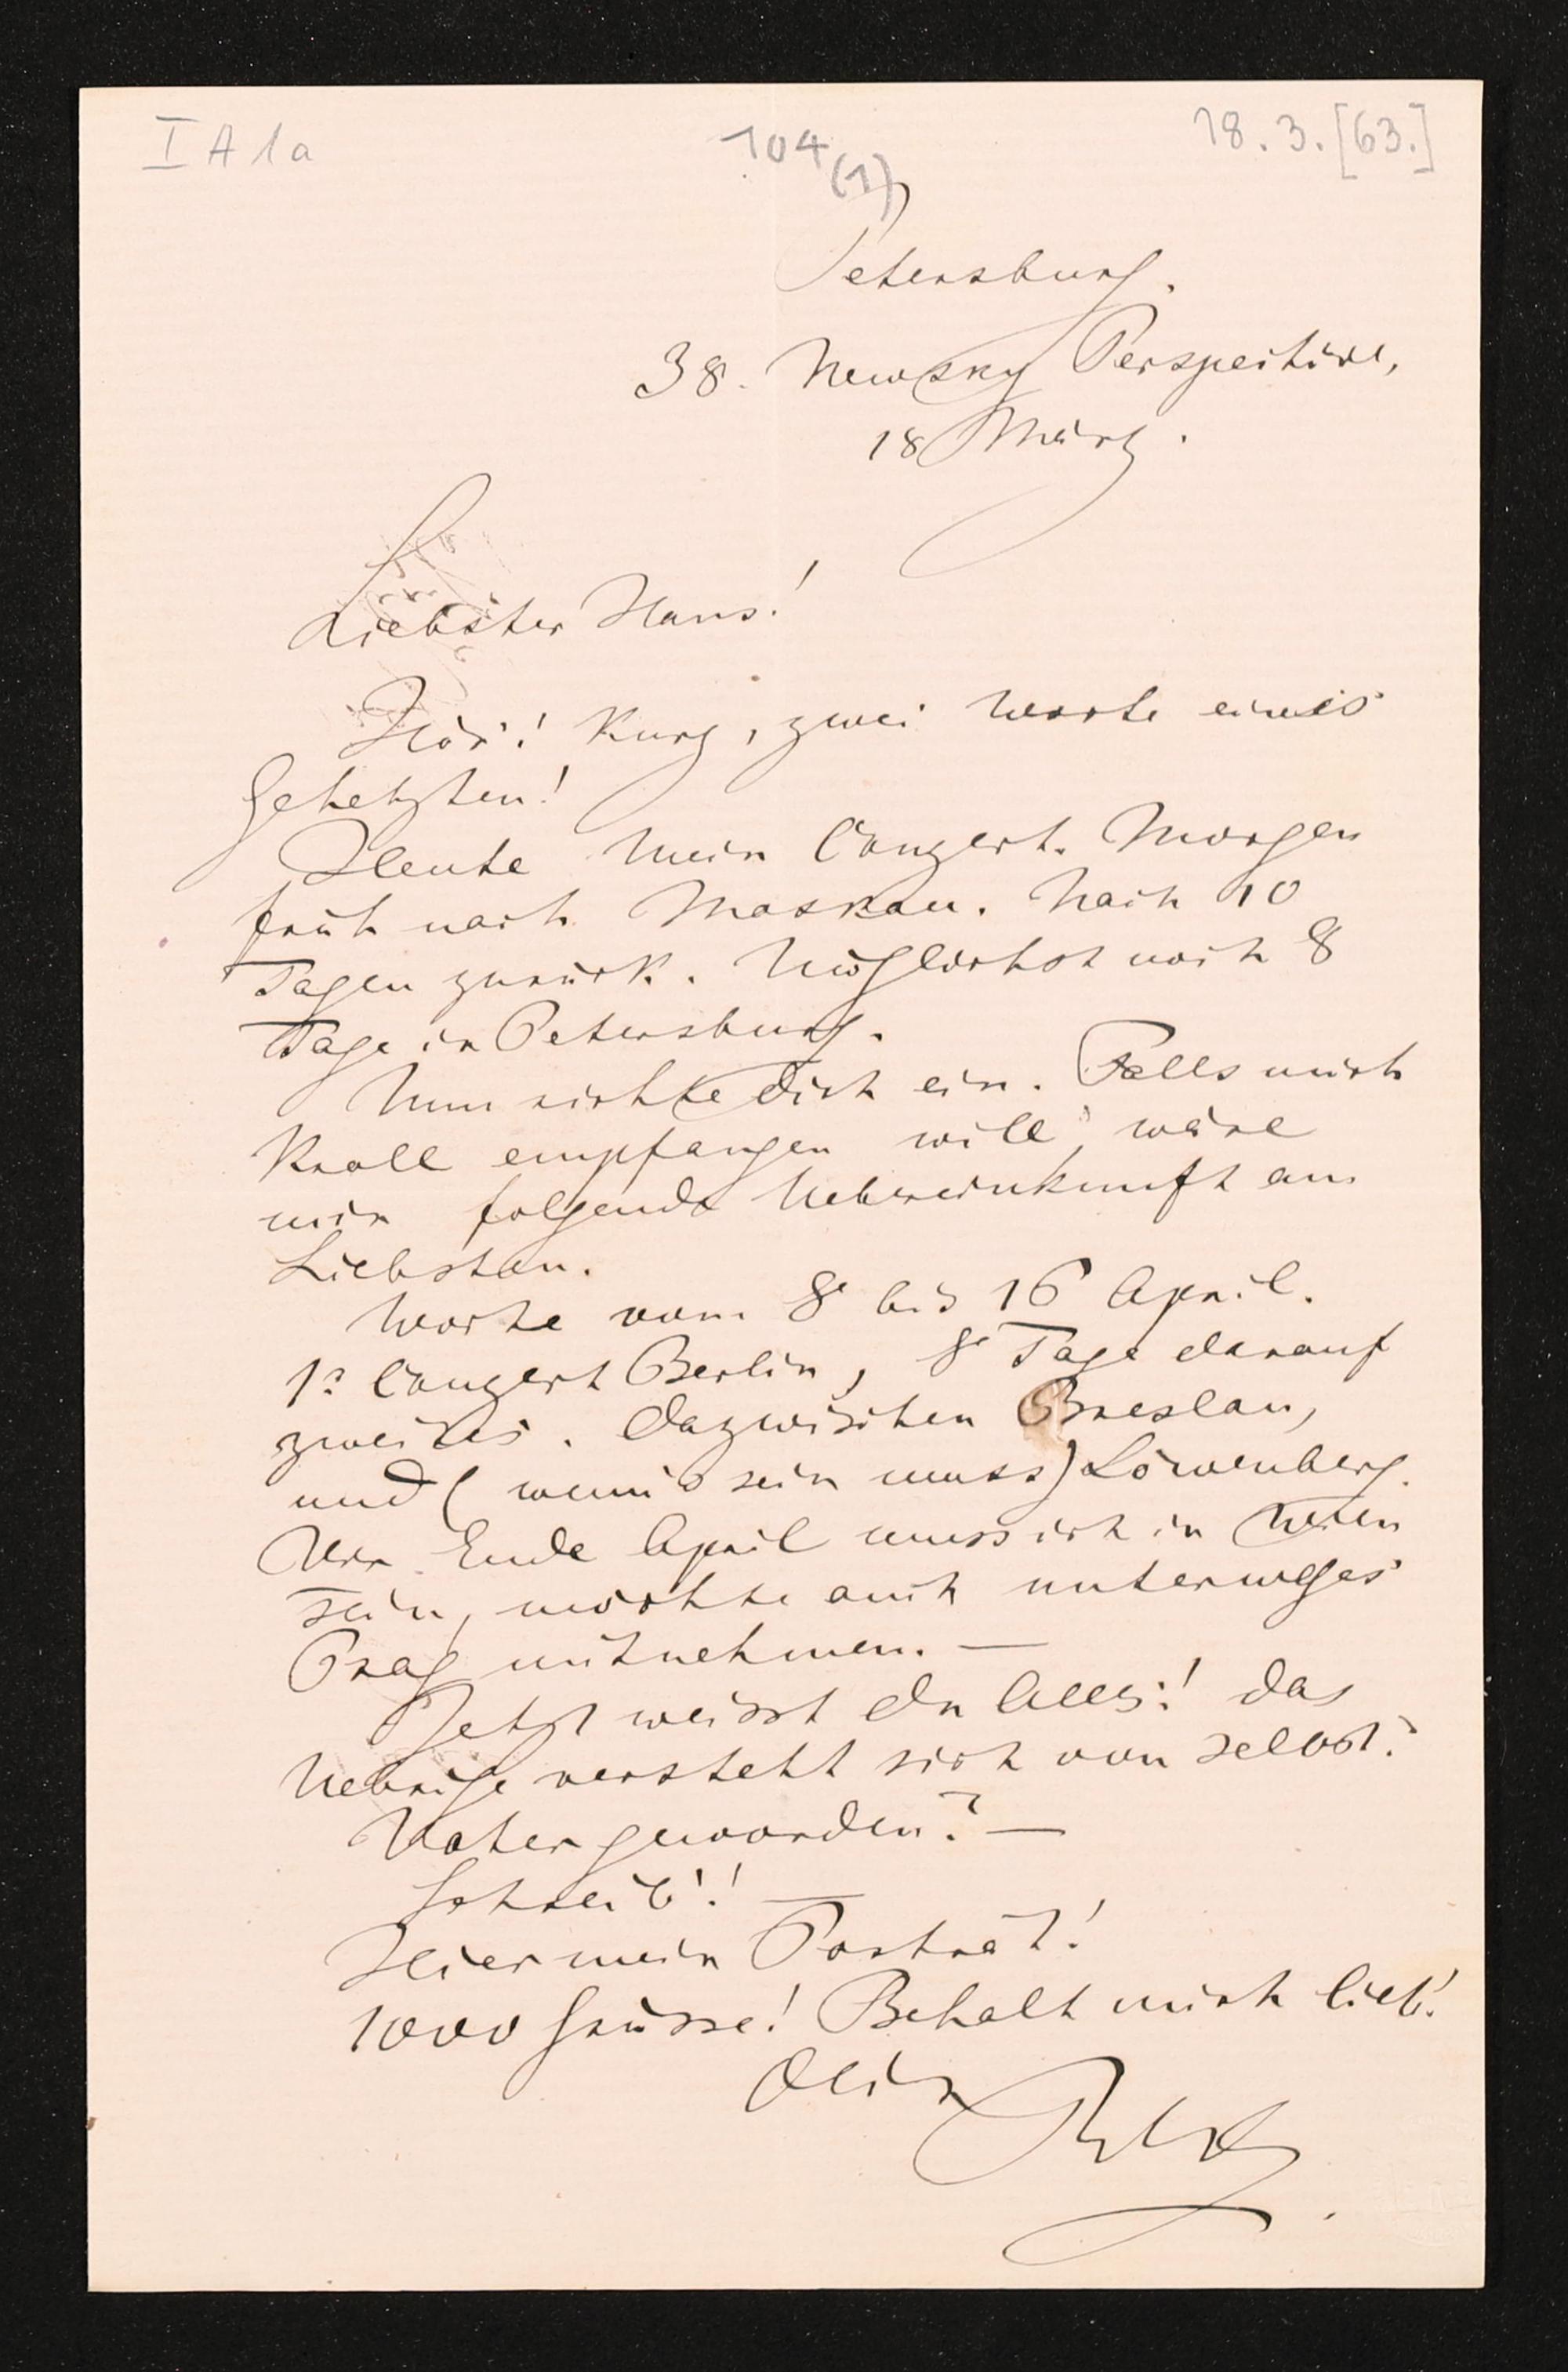 I A 1a
104
(1)
18. 3. [63.]
Petersburg.
38. Newsky Perspective,
18 März.
Liebster Hans!
Hör'! Kurz, zwei Worte eines
Gehetzten!
Heute mein Conzert. Morgen
früh nach Moskau. Nach 10
Tagen zurück. Möglichst noch 8
Tage in Petersburg.
Nun richte dich ein. Falls mich
Kroll empfangen will, wäre
mir folgende Uebereinkunft am
Liebsten.
Woche vom 8 bis 16 April.
1s Conzert Berlin, 8 Tage darauf
zweites. Dazwischen Breslau,
und (wenn's sein muss) Löwenberg.
Ende April muss ich in Wien
sein, möchte auch unterweges
Prag mitnehmen. —
Jetzt weisst du Alles! das
Uebrige versteht sich von selbst.
Vater geworden? —
Schreib'! —
Hier mein Porträt!
1000 Grüsse! Behalt mich lieb!
Dein
RW